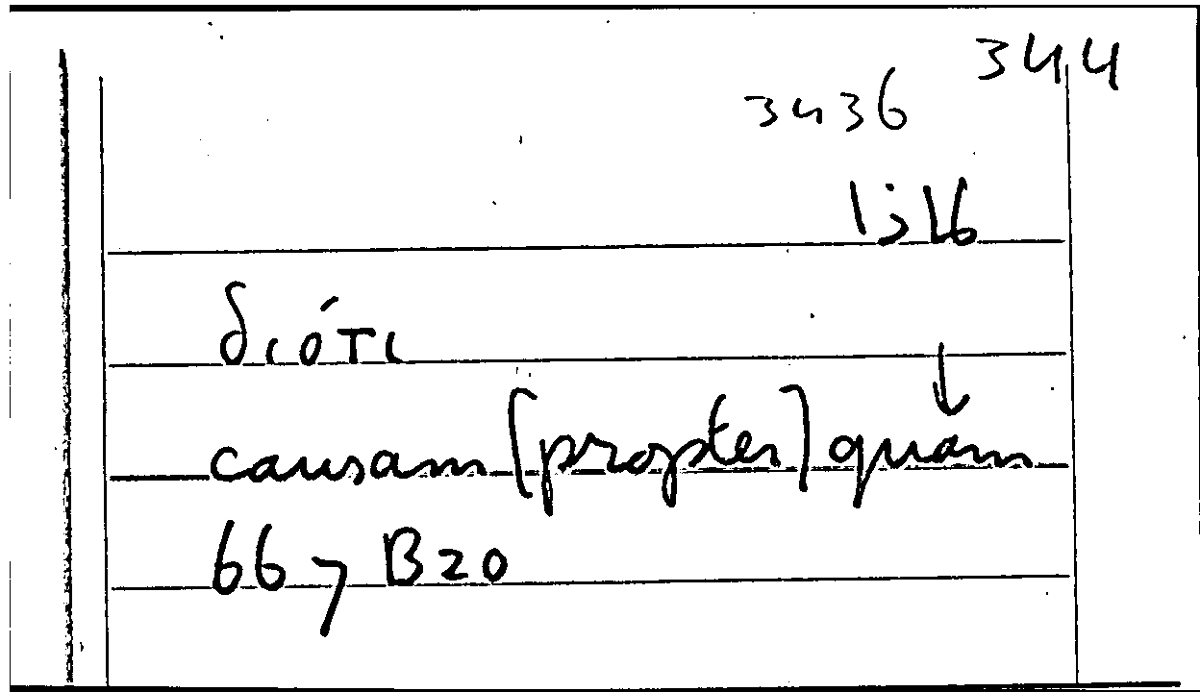 344
3436
1j16
διότι
causam [propter] quam ↓
667 B20